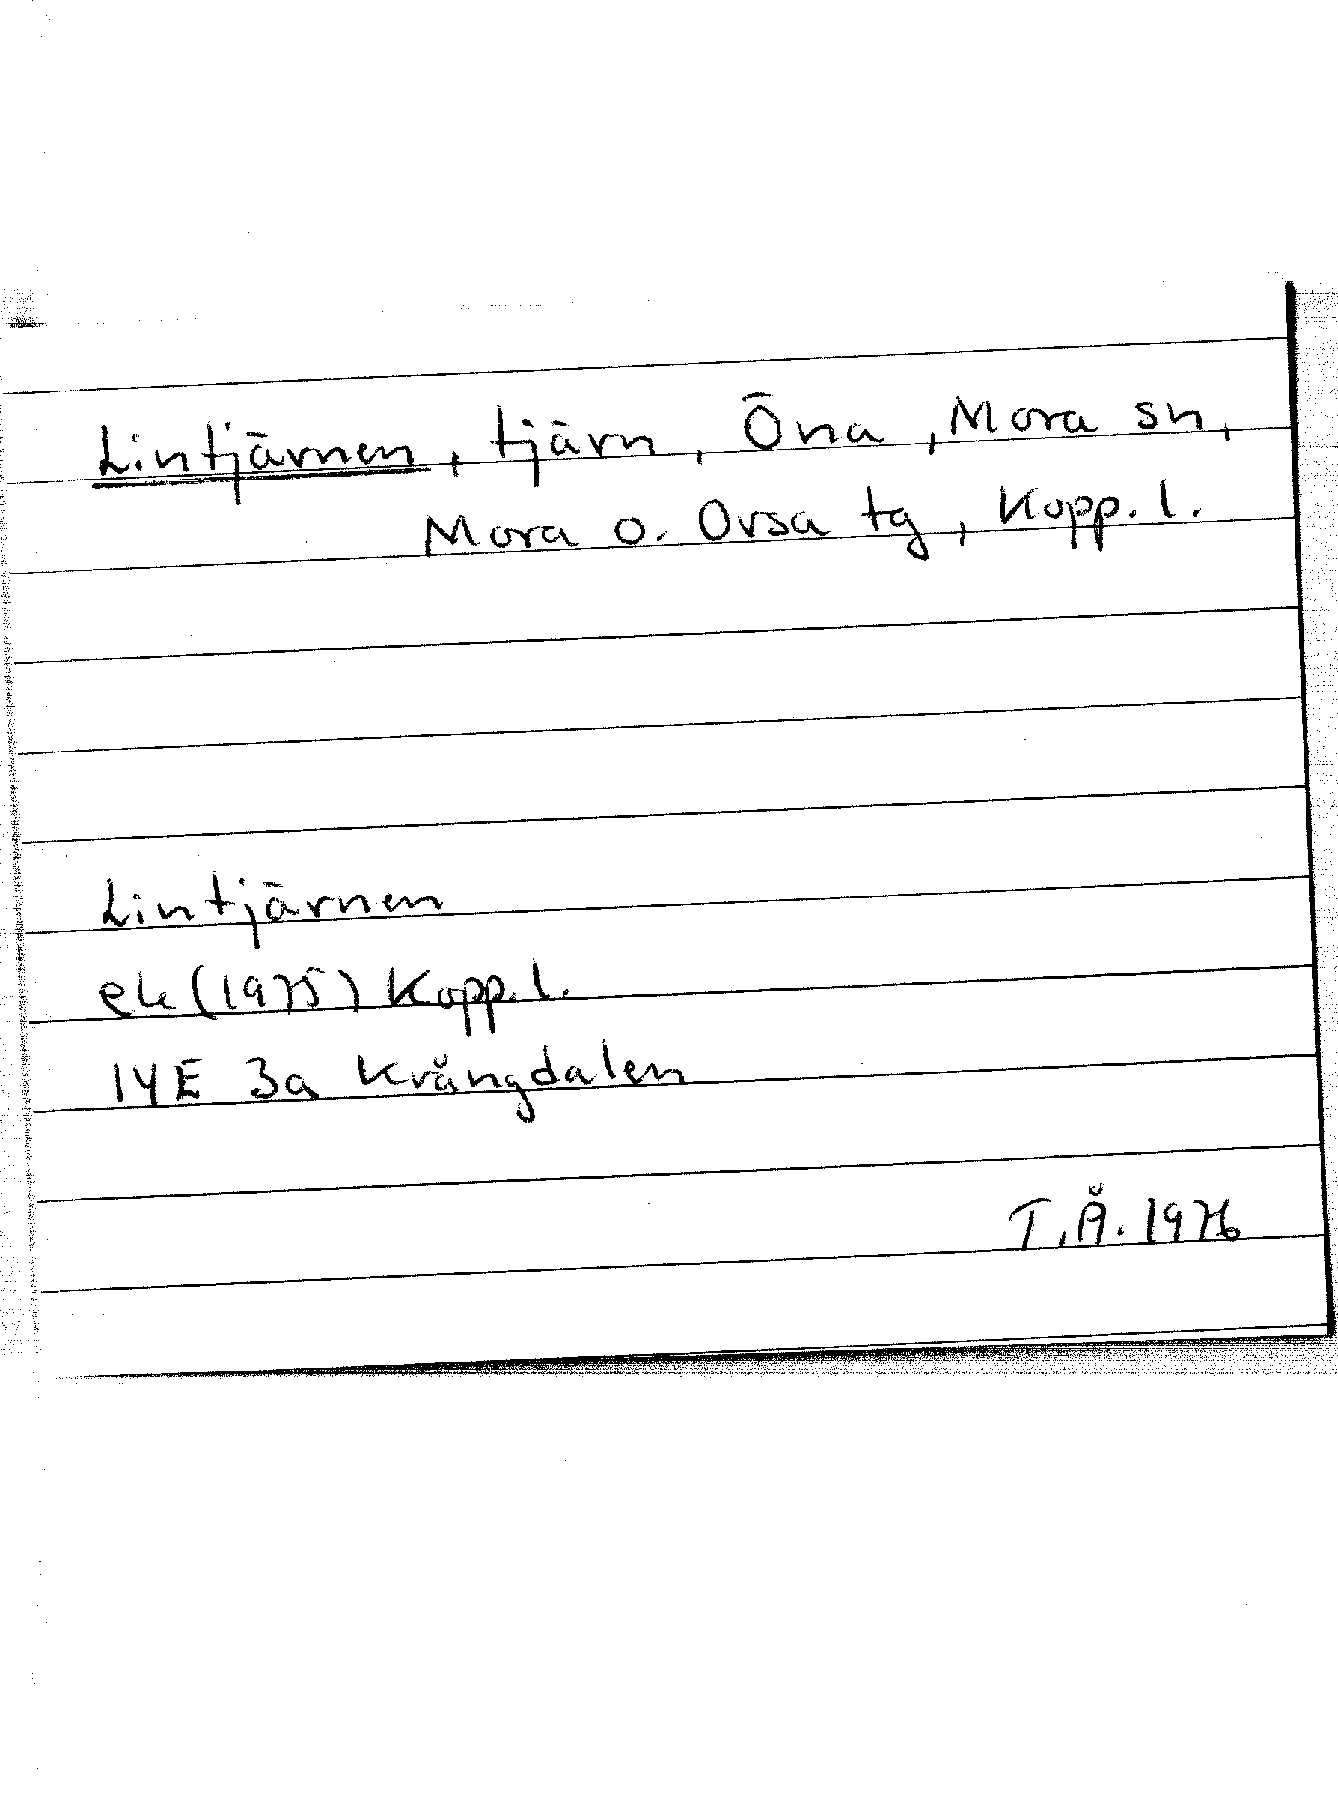 Lintjärnen, tjärn, Öna, Mora sn,
Mora o. Orsa tg, Kopp. l.
Lintjärnen
ek (1975) Kopp. l.
14E 3a Krångdalen
T.Å. 1976